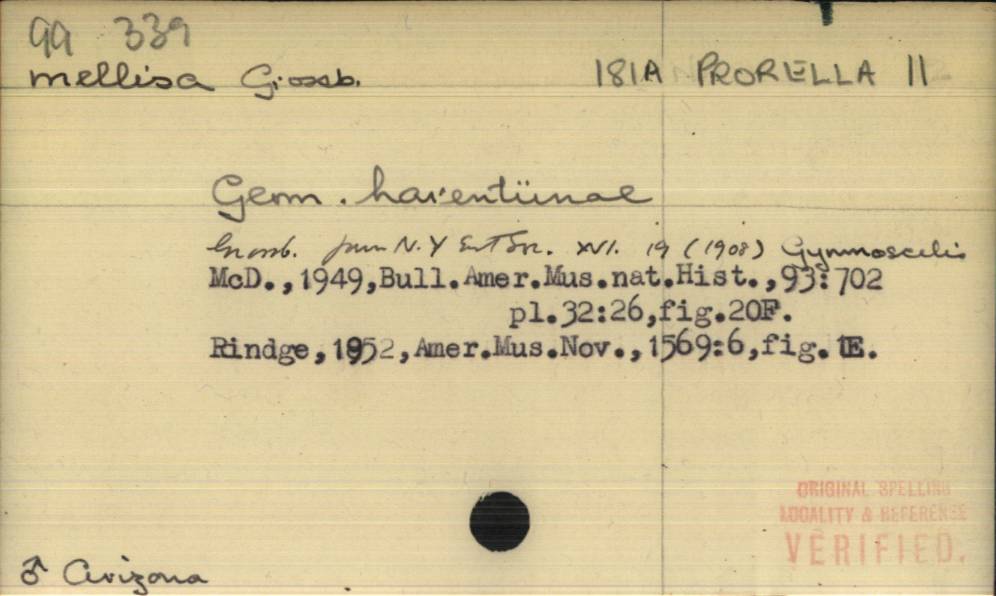 99 339
mellisa Grossb. 181A PRORELLA 11
Geom. larentiinae
Grossb. Journ N.Y Ent Soc. XVI. 19 (1908) Gymnoscelis
McD.,1949,Bull.Amer.Mus.nat.Hist.,93:702
pl.32:26,fig.20F.
Rindge,1952,Amer.Mus.Nov.,1569:6,fig.1E.
ORIGINAL SPELLING
LOCALITY & REFERENCE
VERIFIED.
♂ Arizona